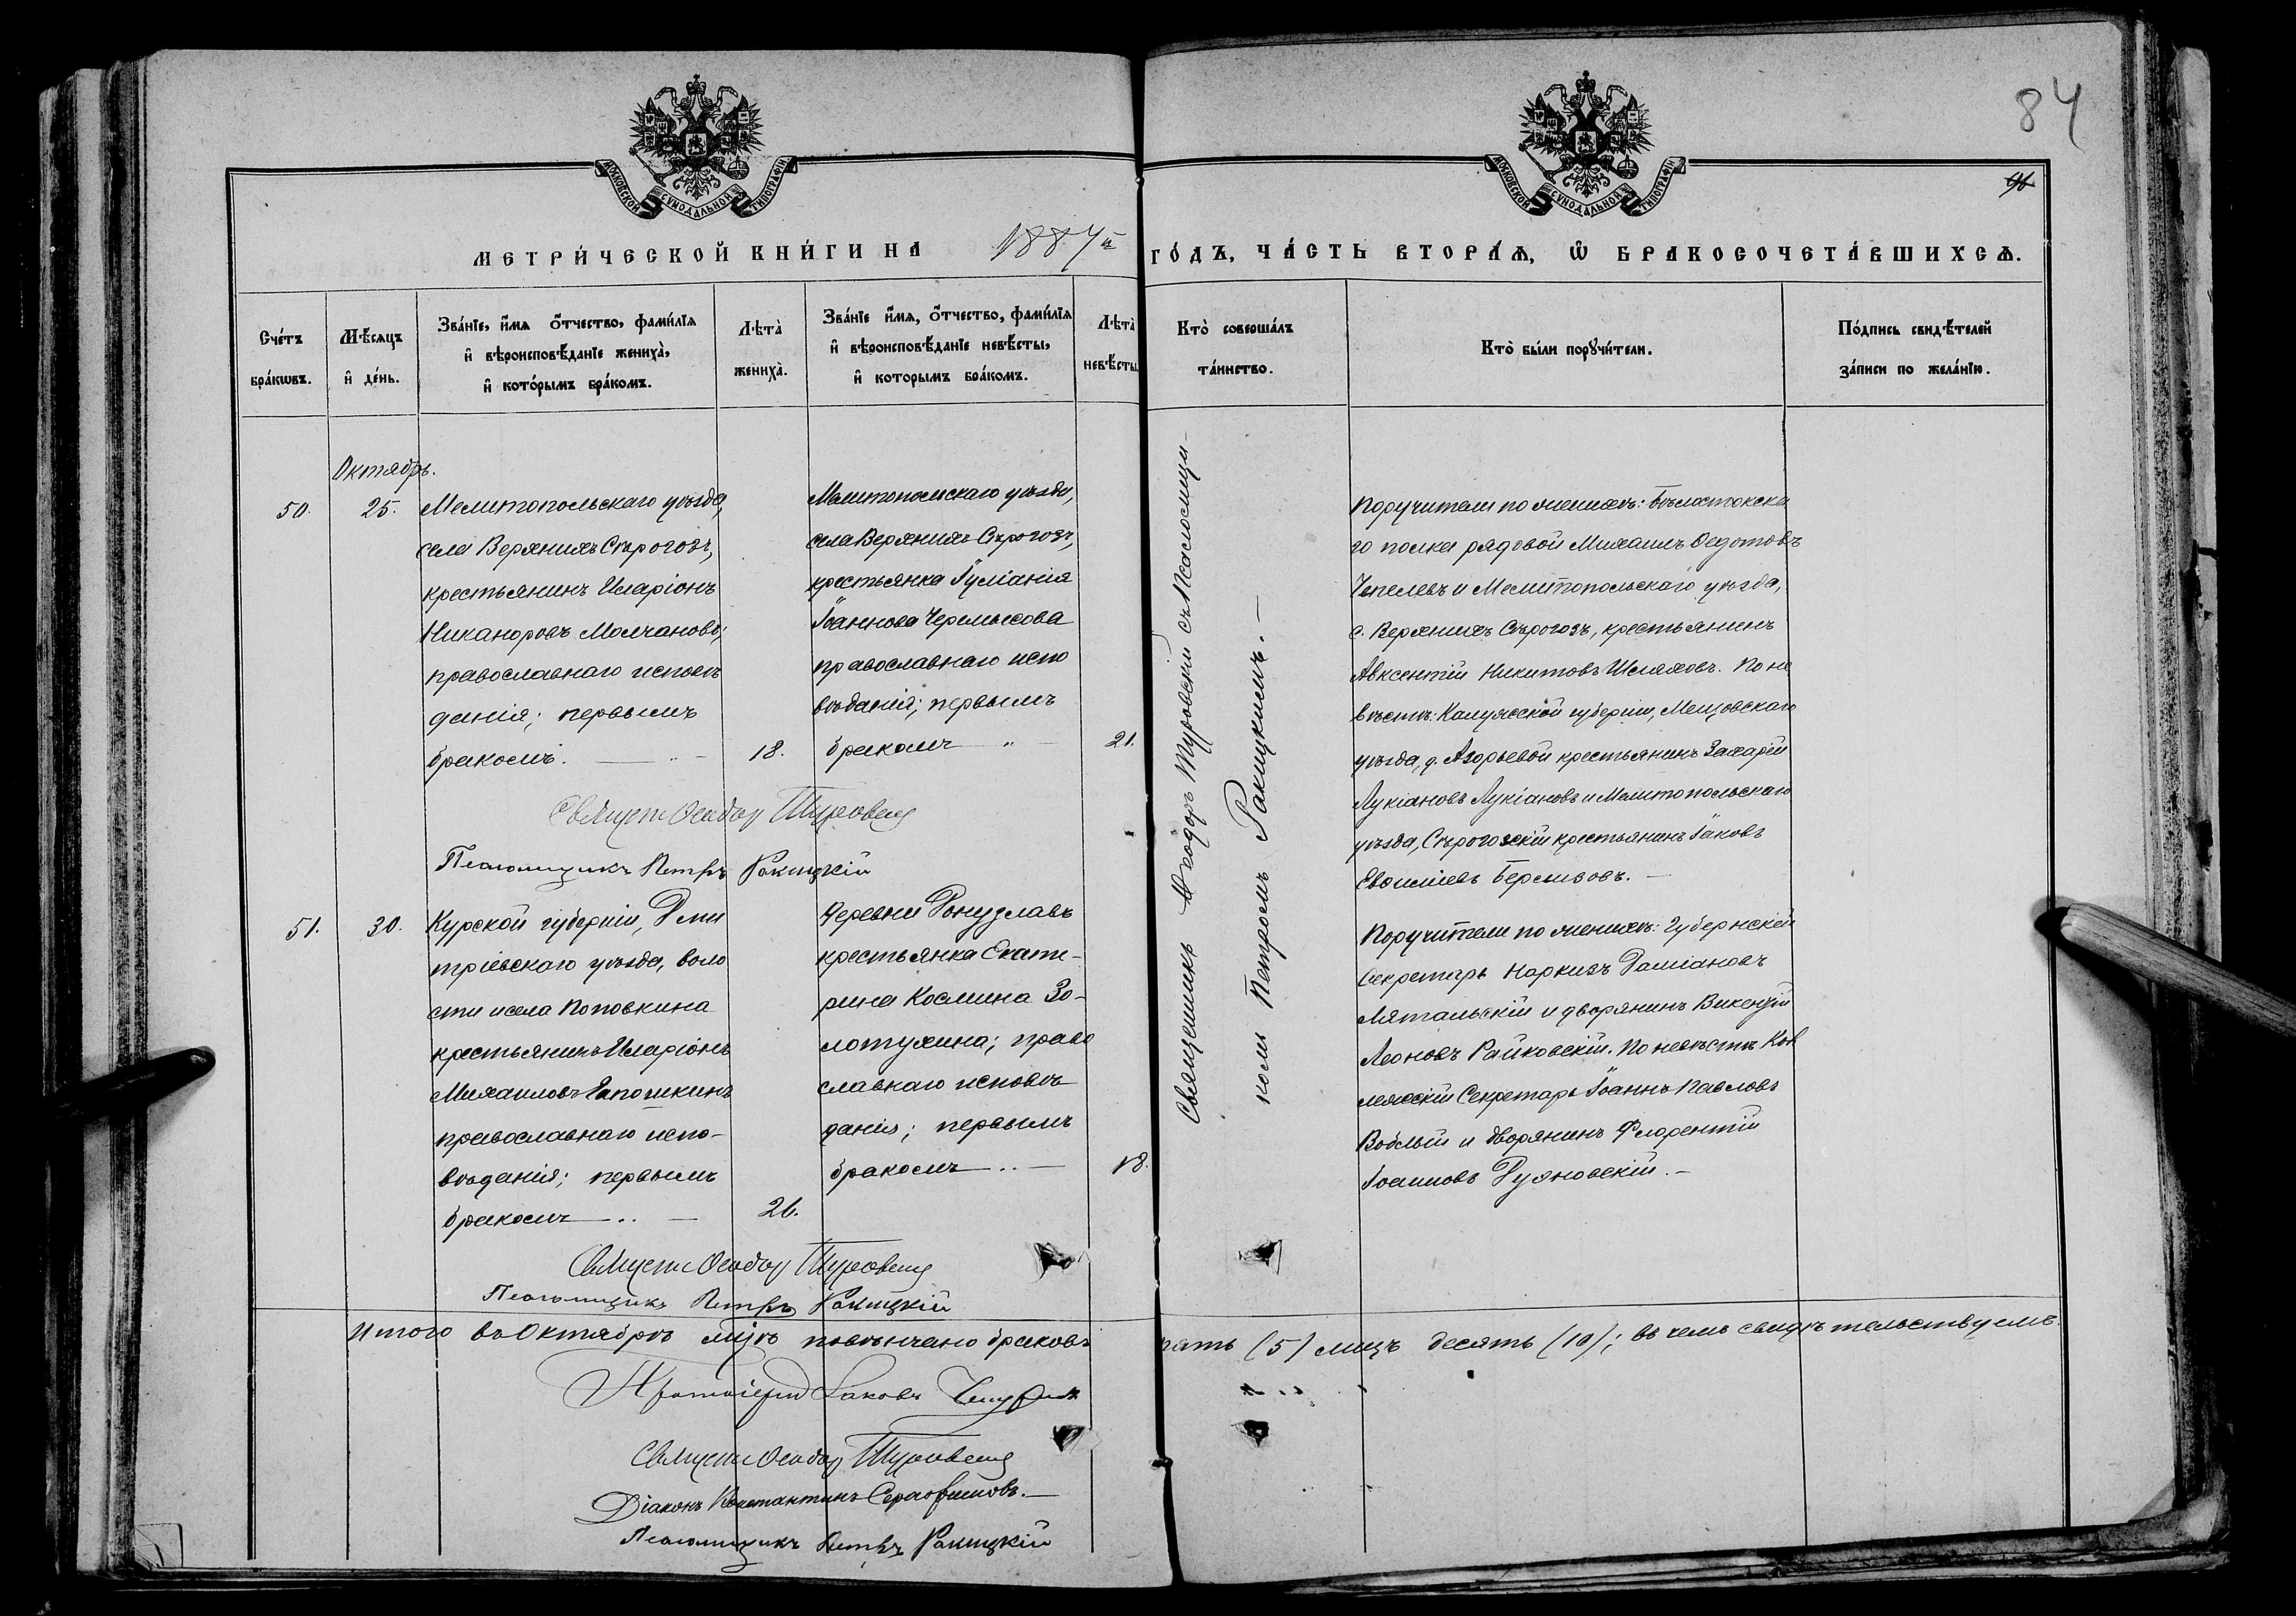 84
96
МОСКОВСКОЙ СѴНОДАЛЬНОЙ ТИПОГРАФІИ
МОСКОВСКОЙ СѴНОДАЛЬНОЙ ТИПОГРАФІИ
МЕТРИ́ЧЕСКОЙ КНИ́ГИ НА 1887й ГО́ДЪ, ЧА́СТЬ ВТОРА́Ѧ, Ѿ БРАКОСОЧЕТА́ВШИХСѦ.
Сче́тъ
бра́кѡвъ.
Мѣ́сѧцъ
и҆ де́нь.
Зва́нїе, и҆́мѧ ѻ҆́тчество, фами́лїѧ
и҆ вѣроисповѣ́данїе жениха̀,
и҆ кото́рымъ бра́комъ.
Лѣта̀
жениха̀.
Зва́нїе и҆́мѧ, ѻ҆́тчество, фами́лїѧ
и҆ вѣроисповѣ́данїе невѣ́сты,
и҆ которымъ бра́комъ.
Лѣта̀
невѣ́сты.
Кто̀ соверша́лъ
та́инство.
Кто̀ бы́ли порꙋчи́тели.
По́дпись свидѣ́телей
за́писи по жела́нїю.
Октябрь.
50.
25.
Мелитопольскаго уѣзда,
села Верхнихъ Сѣрогозъ,
крестьянинъ Иларіонъ
Никаноровъ Молчановъ;
православнаго исповѣ
данія; первымъ
бракомъ.
18.
Мелитопольскаго уѣзда,
села Верхнихъ Сѣрогозъ,
крестьянка Іуліанія
Іоаннова Черемисова
православнаго испо
вѣданія; первымъ
бракомъ
21.
Священникъ Ѳеодоръ Туровскій съ Псаломщи-
комъ Петромъ Ракицкимъ.
Поручители по женихѣ: Бѣлостокска
го полка рядовой Михаилъ Ѳедотовъ
Чепелевъ и Мелитопольскаго уѣзда,
с. Верхнихъ Сѣрогозъ, крестьянинъ
Авксентій Никитовъ Шляховъ. По не
вѣстѣ: Калужской губерніи, Мещовскаго
уѣзда, д. Азорьевой крестьянинъ Захарій
Лукіановъ Лукіановъ и Мелитопольскаго
уѣзда, Сѣрогозскій крестьянинъ Іаковъ
Евѳиміевъ
Ѳеодоръ Туровскій
Псаломщикъ Петръ Ракицкій
51.
30.
Курской губерніи, Дми
тріевскаго уѣзда, воло
сти и села Поповкина
крестьянинъ Иларіонъ
Михаиловъ Лапошкинъ
православнаго испо-
вѣданія; первымъ
бракомъ
26.
Деревни Донузлавъ
крестьянка Екате-
рина Космина Зо-
лотухина; право
славнаго исповѣ
данія; первымъ
бракомъ
18.
Поручители по женихѣ: Губернскій
Секретарь Наркизъ Даміановъ
Лятальскій и дворянинъ Викентій
Леоновъ Райковскій. По невѣстѣ Кол
лежскій Секретарь Іоаннъ Павловъ
Воблый и дворянинъ Флорентій
Іоанновъ Руяновскій.
Ѳеодоръ Туровскій
Псаломщикъ Петръ Ракицкій
Итого въ Октябрѣ мцѣ повѣнчано браковъ пять (5) лицъ десять (10); въ чемъ свидѣтельствуемъ.
Протоіерей Іаковъ
Ѳеодоръ Туровскій
Діаконъ Константинъ Серафимовъ.
Псаломщикъ Петръ Ракицкій